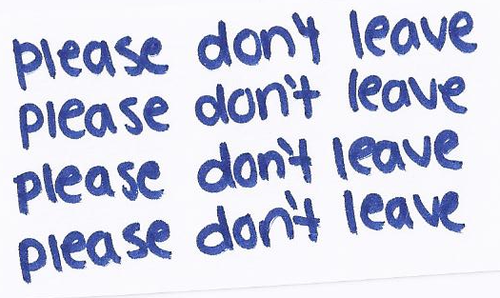 please don't leave
please don't leave
please don't leave
please don't leave